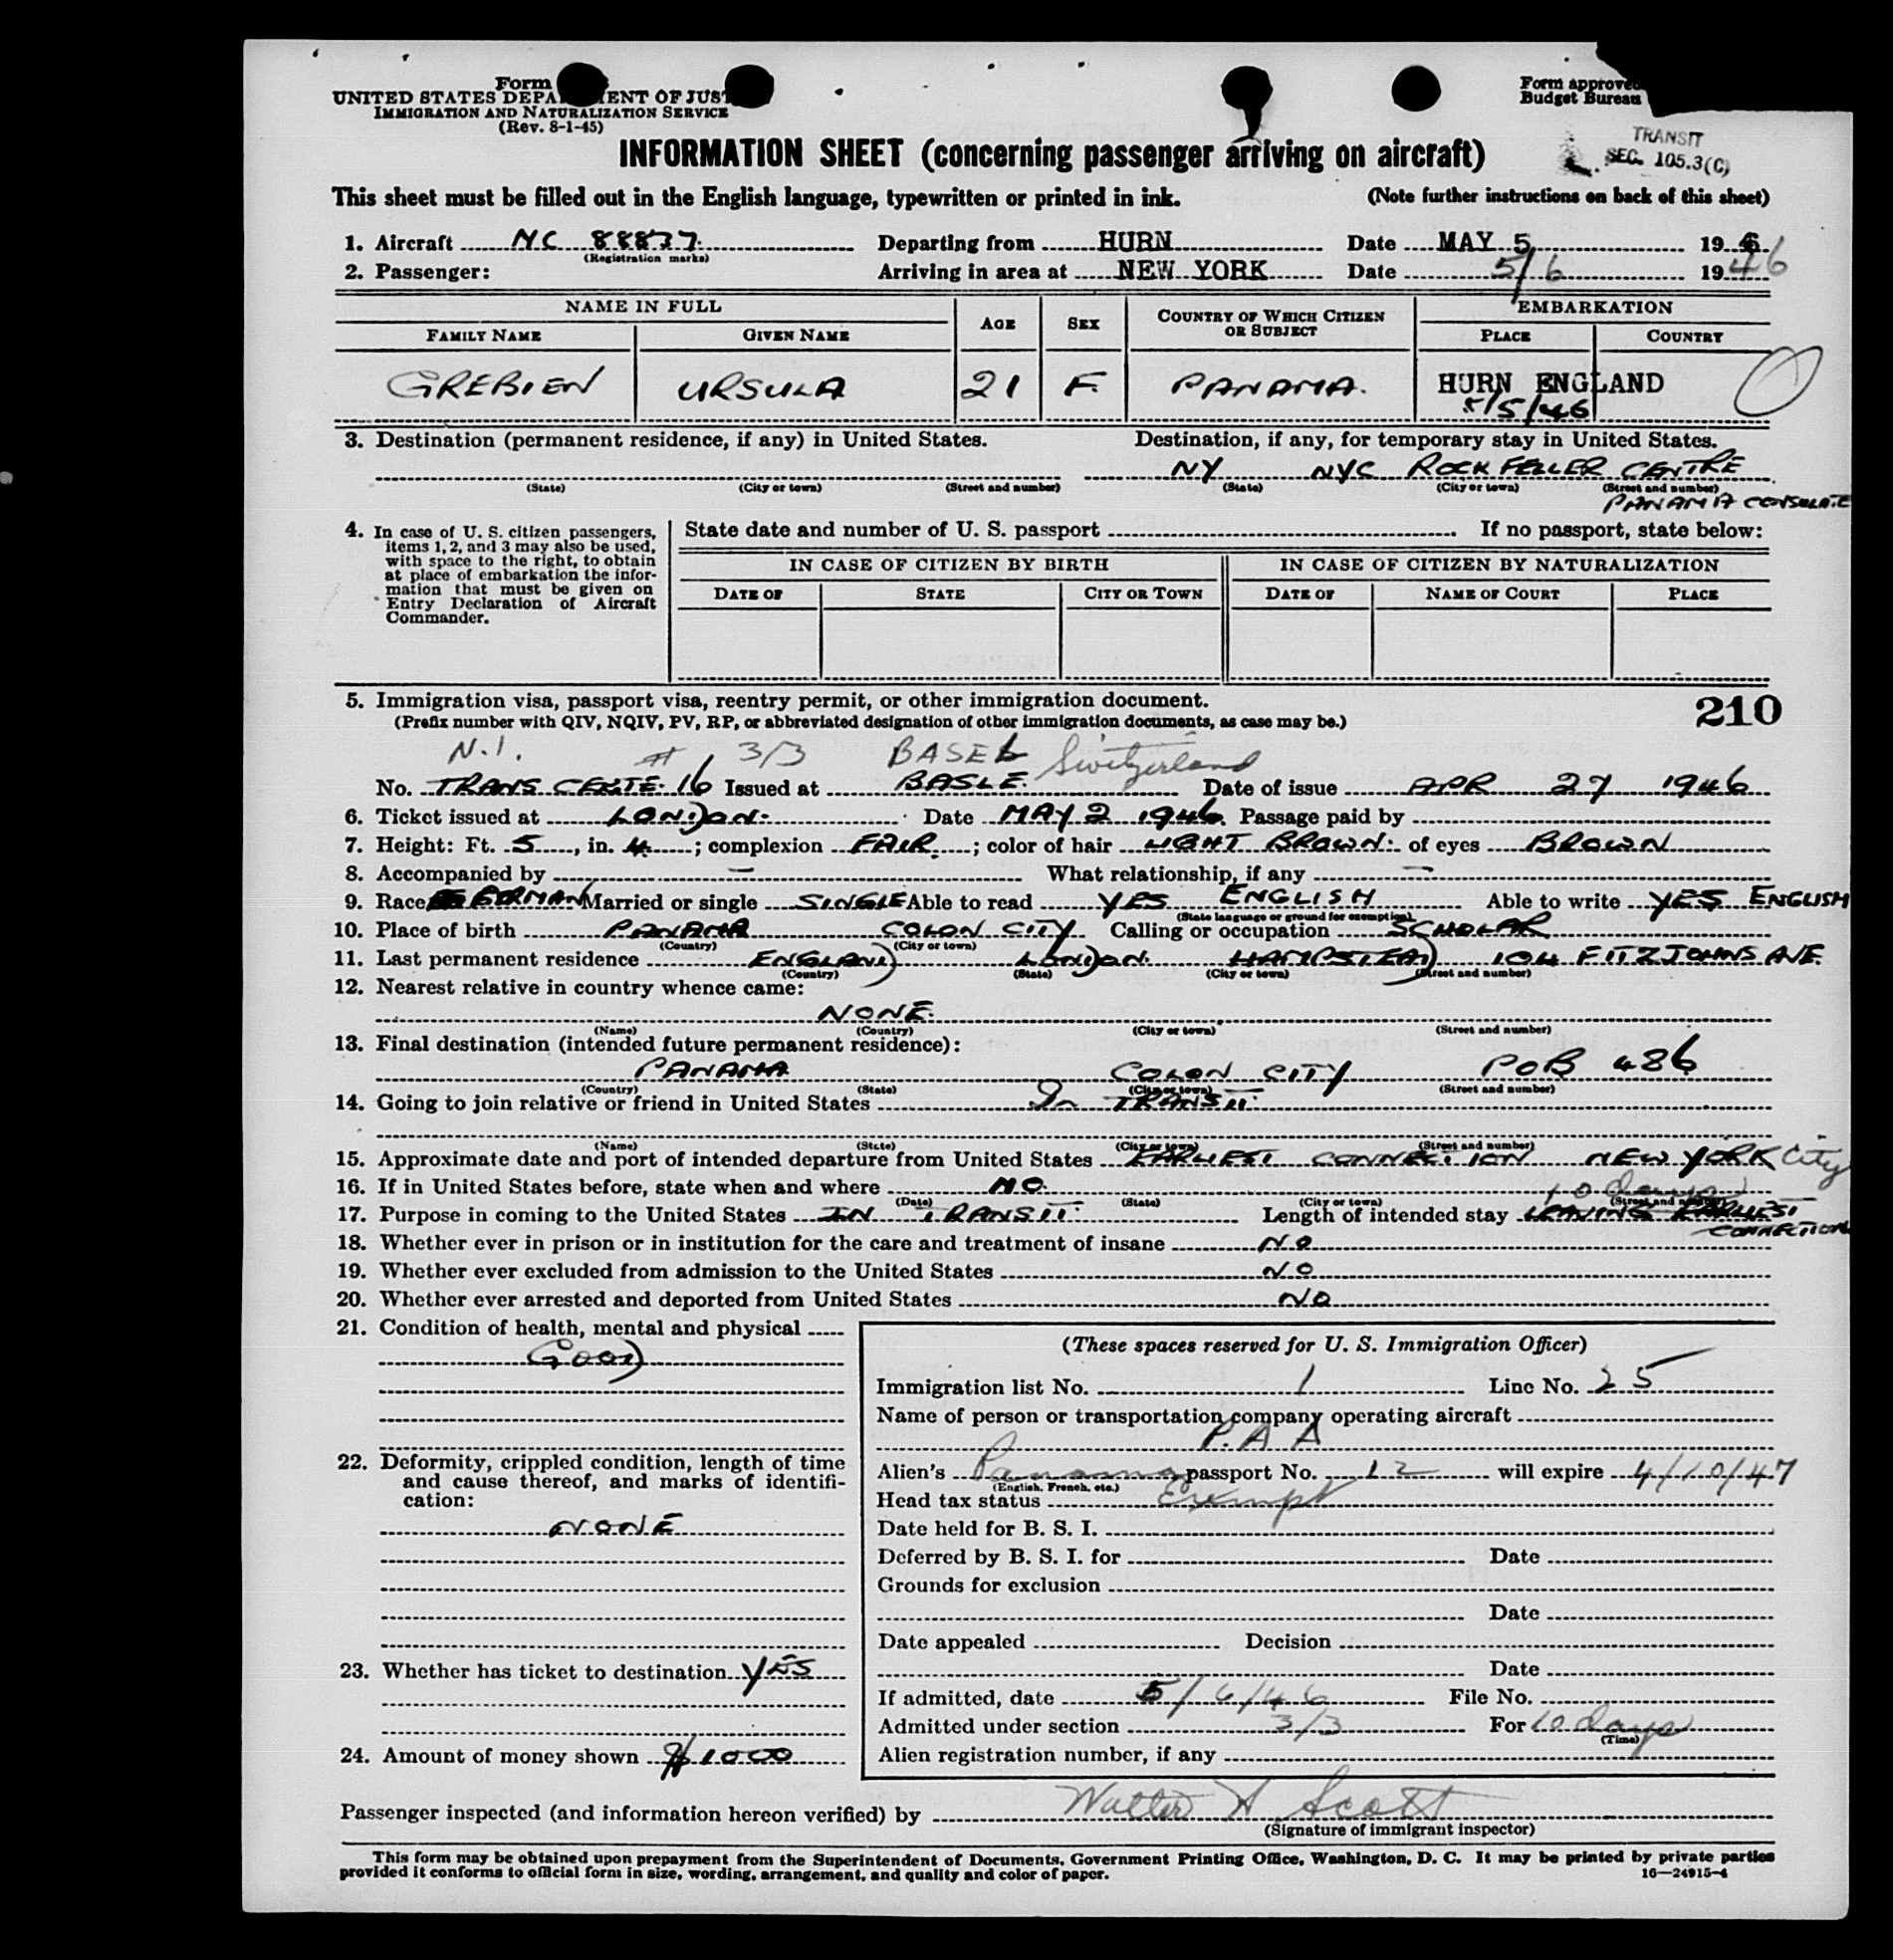 Form
UNITED STATES DEPA ENT OF JUS
IMMIGRATION AND NATURALIZATION SERVICE
(Rev. 8-1-45)
Form approved
Budget Bureau
TRANSIT
SEC. 105.3(C)
INFORMATION SHEET (concerning passenger arriving on aircraft)
This sheet must be filled out in the English language, typewritten or printed in ink. (Note further instructions on back of this sheet)
1. Aircraft NC 88837 Departing from HURN Date MAY 5 19 46
(Registration marks)
2. Passenger: Arriving in area at NEW YORK Date 5/6 1946
NAME IN FULL AGE SEX COUNTRY OF WHICH CITIZEN OR SUBJECT EMBARKATION
FAMILY NAME GIVEN NAME PLACE COUNTRY
GREBIEN URSULA 21 F. PANAMA. HURN ENGLAND
5/5/46
3. Destination (permanent residence, if any) in United States. Destination, if any, for temporary stay in United States.
NY NYC ROCKFELLER CENTRE
(State) (City or town) (Street and number) (State) (City or town) (Street and number)
PANAMA CONSULATE
4. In case of U. S. citizen passengers, items 1, 2, and 3 may also be used, with space to the right, to obtain at place of embarkation the information that must be given on Entry Declaration of Aircraft Commander.
State date and number of U. S. passport If no passport, state below:
IN CASE OF CITIZEN BY BIRTH IN CASE OF CITIZEN BY NATURALIZATION
DATE OF STATE CITY OR TOWN DATE OF NAME OF COURT PLACE
5. Immigration visa, passport visa, reentry permit, or other immigration document. 210
(Prefix number with QIV, NQIV, PV, RP, or abbreviated designation of other immigration documents, as case may be.)
N.I. # 3/3 BASEL Switzerland
No. TRANS CERTE. 16 Issued at BASLE. Date of issue APR 27 1946
6. Ticket issued at LONDON. Date MAY 2 1946. Passage paid by
7. Height: Ft. 5, in. 4; complexion FAIR.; color of hair LIGHT BROWN. of eyes BROWN
8. Accompanied by — What relationship, if any —
9. Race GERMAN Married or single SINGLE Able to read YES ENGLISH Able to write YES ENGLISH
(State language or ground for exemption)
10. Place of birth PANAMA COLON CITY Calling or occupation SCHOLAR
(Country) (City or town)
11. Last permanent residence ENGLAND LONDON HAMPSTEAD 104 FITZJOHNS AVE
(Country) (State) (City or town) (Street and number)
12. Nearest relative in country whence came:
NONE.
(Name) (Country) (City or town) (Street and number)
13. Final destination (intended future permanent residence):
PANAMA COLON CITY POB 486
(Country) (State) (City or town) (Street and number)
14. Going to join relative or friend in United States In TRANSIT
(Name) (State) (City or town) (Street and number)
15. Approximate date and port of intended departure from United States EARLIEST CONNECTION NEW YORK City
16. If in United States before, state when and where NO.
(Date) (State) (City or town) (Street and number)
10 days
17. Purpose in coming to the United States IN TRANSIT. Length of intended stay LEAVING EARLIEST
CONNECTION
18. Whether ever in prison or in institution for the care and treatment of insane NO
19. Whether ever excluded from admission to the United States NO
20. Whether ever arrested and deported from United States NO
21. Condition of health, mental and physical
GOOD
22. Deformity, crippled condition, length of time and cause thereof, and marks of identification:
NONE
23. Whether has ticket to destination YES
24. Amount of money shown $ 1000
(These spaces reserved for U. S. Immigration Officer)
Immigration list No. 1 Line No. 25
Name of person or transportation company operating aircraft
P.A A
Alien's Panama passport No. 12 will expire 4/10/47
(English, French, etc.)
Head tax status Exempt
Date held for B. S. I.
Deferred by B. S. I. for Date
Grounds for exclusion
Date
Date appealed Decision
Date
If admitted, date 5/6/46 File No.
Admitted under section 3/3 For 10 days
(Time)
Alien registration number, if any
Passenger inspected (and information hereon verified) by Walter A Scott
(Signature of immigrant inspector)
This form may be obtained upon prepayment from the Superintendent of Documents, Government Printing Office, Washington, D. C. It may be printed by private parties
provided it conforms to official form in size, wording, arrangement, and quality and color of paper. 16—24915-4